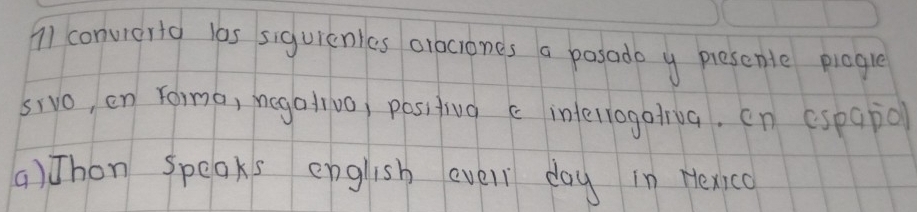 1) convierta las siguientes oraciones a pasado y presente progre
sivo, en forma, negativa, positiva e interrogativa. en español
a) Jhon Speaks english everi day in Mexico